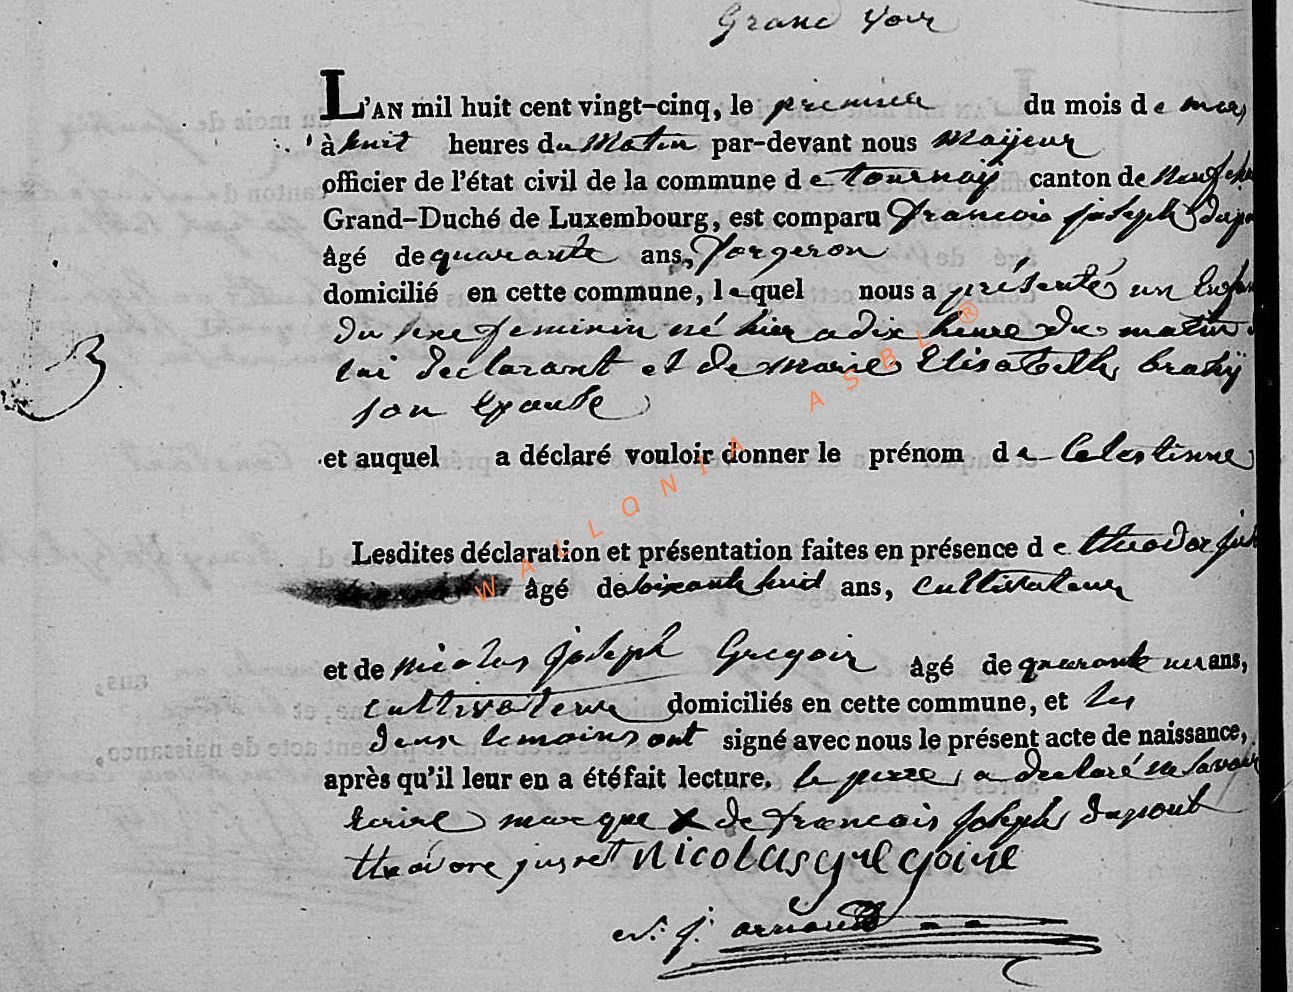 Grand Voir
L'AN mil huit cent vingt-cinq, le premier du mois de mars
à huit heures du Matin par-devant nous Maijeur
officier de l'état civil de la commune de tournaÿ canton de Neufch
Grand-Duché de Luxembourg, est comparu francois joseph dupo
âgé de quarante ans, forgeron
domicilié en cette commune, lequel nous a présentés un Enfan
du sexe feminin né hier a dix heure du matin
lui declarant et de marie Elisabeth brahÿ
son Epouse
3
et auquel a déclaré vouloir donner le prénom de Celestinne
Lesdites déclaration et présentation faites en présence de theodor jus
âgé de soixante huit ans, cultivateur
et de nicolas joseph Gregoir âgé de quarante un ans,
cultivateur domiciliés en cette commune, et les
deux temoins ont signé avec nous le présent acte de naissance,
après qu'il leur en a été fait lecture. le perre a declaré ne savoir
Ecrire marque X de francois joseph dupont
theodore jusret nicolas gregoire
N: j: arnould
WALLONIA ASBL ®